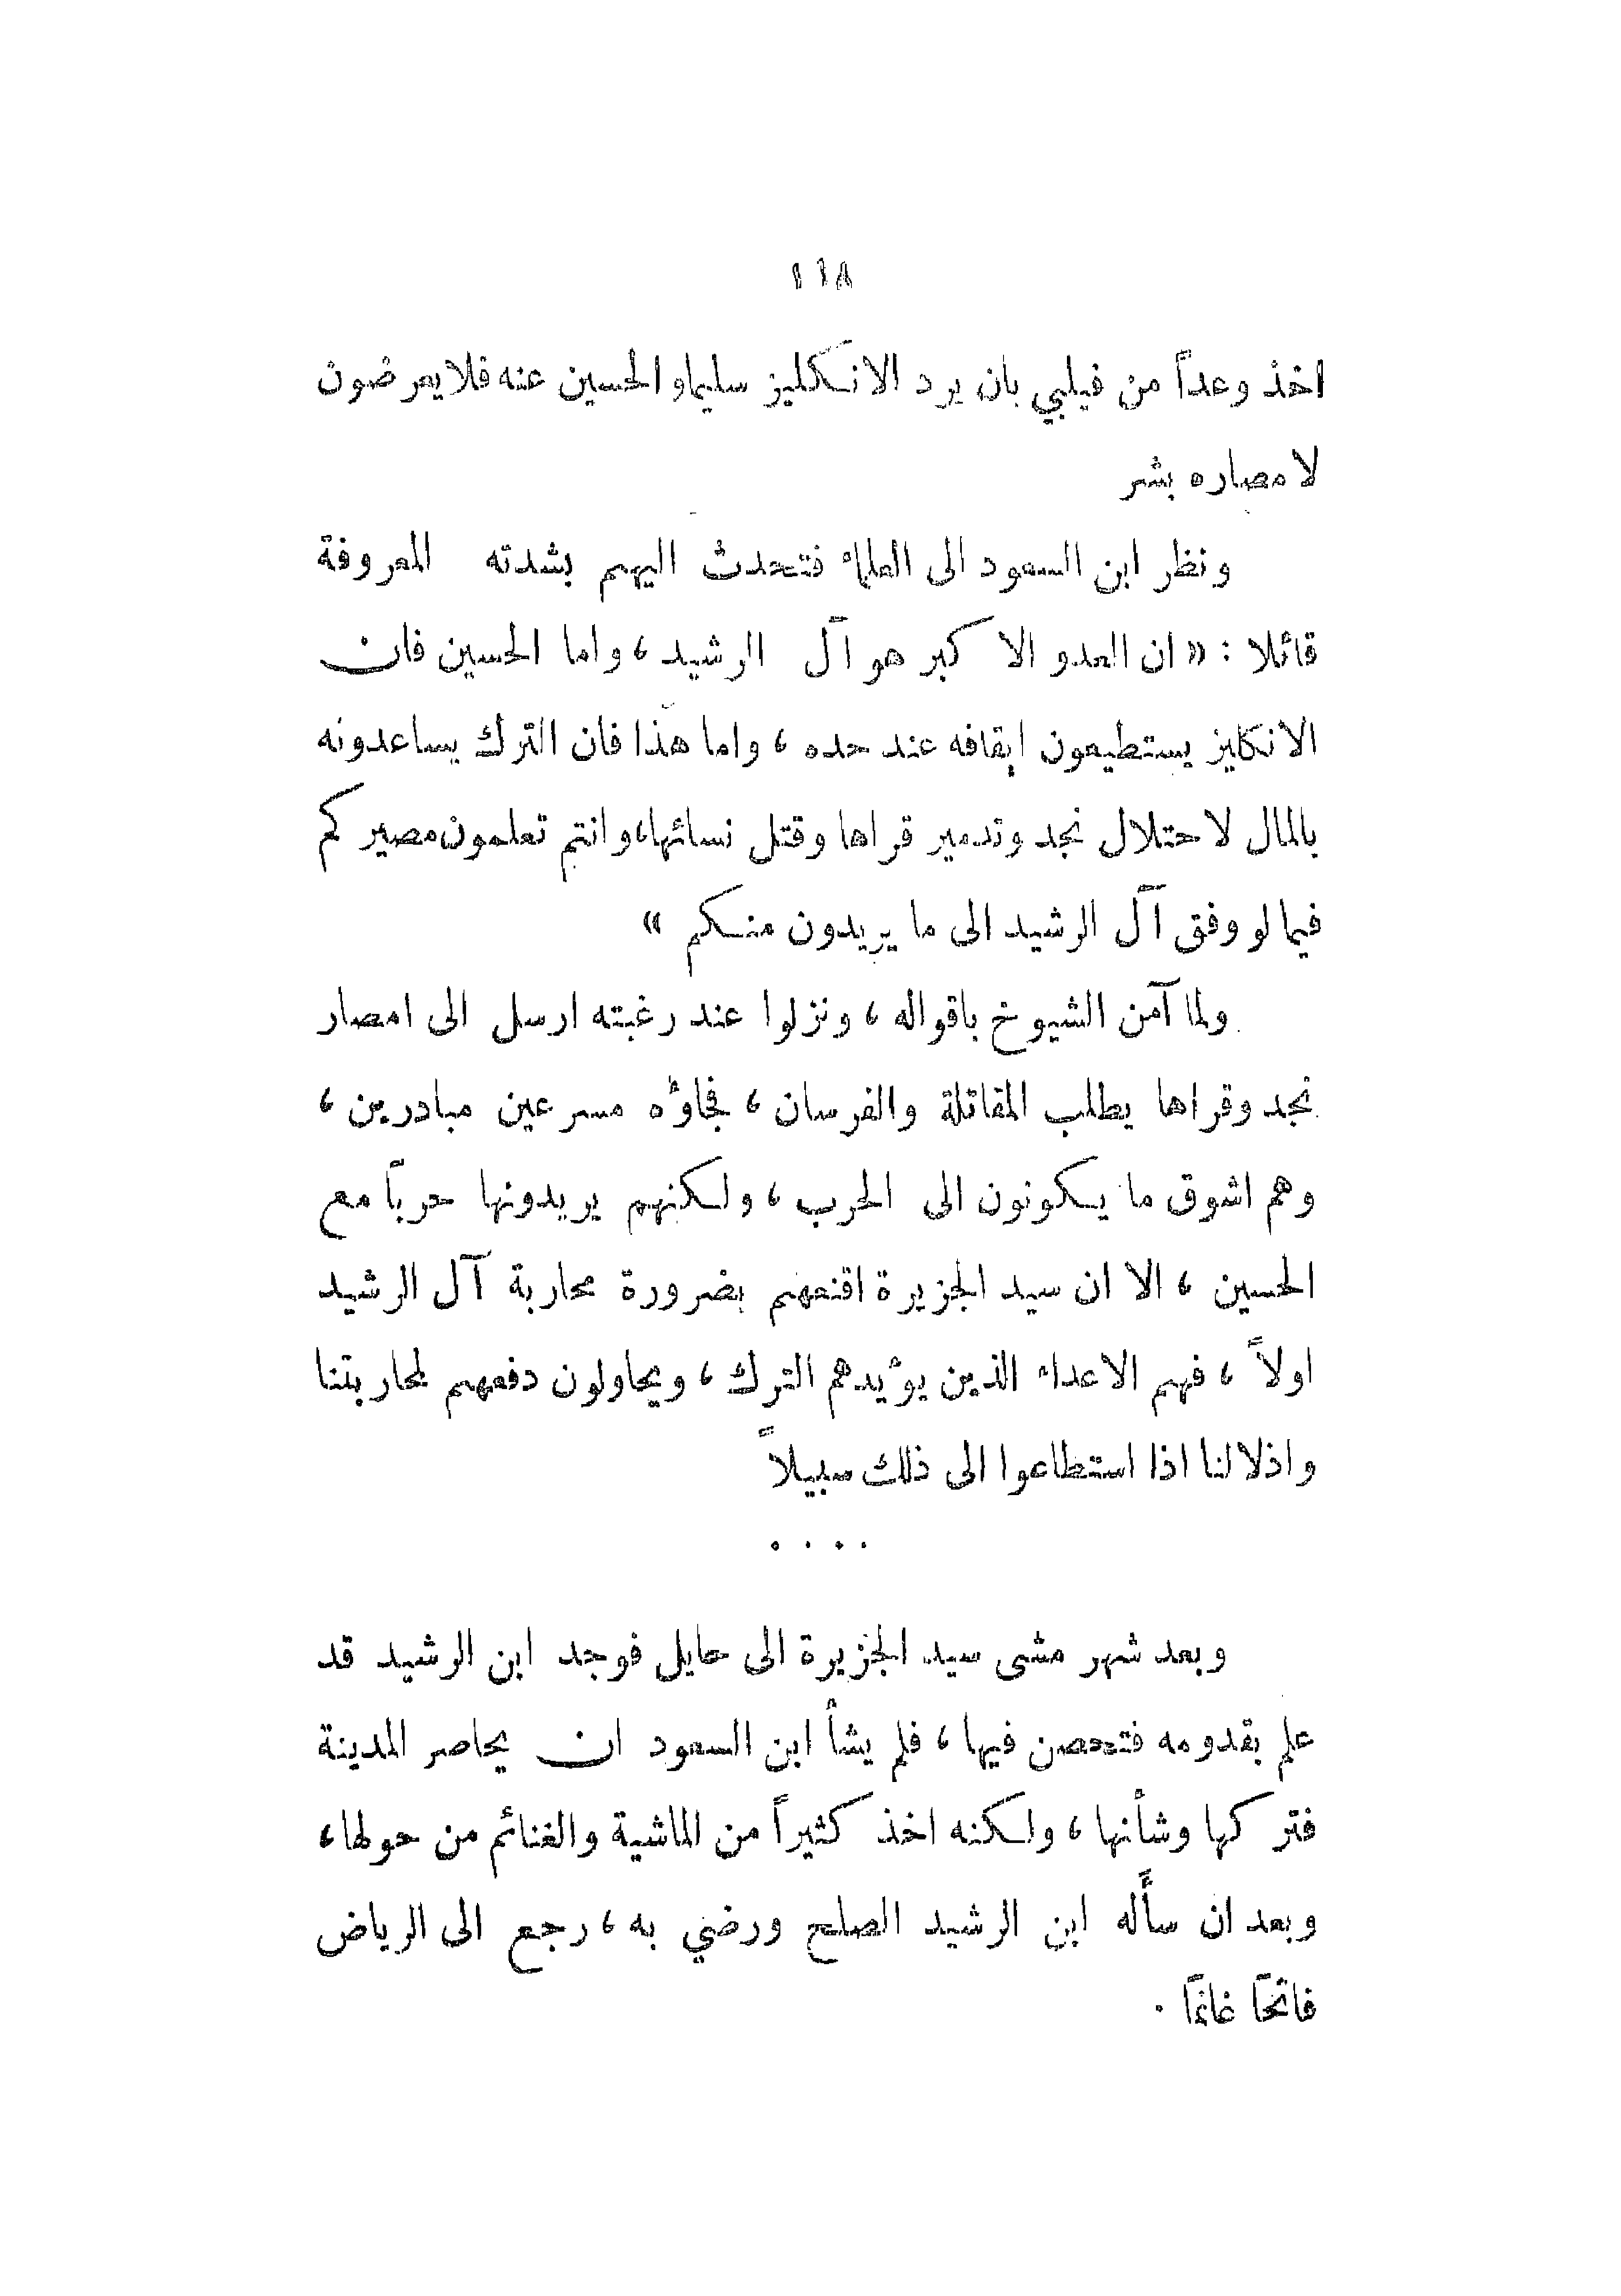 ١١٨
اخذ وعداً من فيلبي بان يرد الانكليز سليما والحسين عنه فلا يعرضون
لامصاره بشر
ونظر ابن السعود الى العلماء فتحدث اليهم بشدته المعروفة
قائلا : « ان العدو الاكبر هو آل الرشيد ، واما الحسين فان
الانكليز يستطيعون ايقافه عند حده ، واما هذا فان الترك يساعدونه
بالمال لاحتلال نجد وتدمير قراها وقتل نسائها، وانتم تعلمون مصيركم
فيما لو وفق آل الرشيد الى ما يريدون منكم »
ولما آمن الشيوخ باقواله ، ونزلوا عند رغبته ارسل الى امصار
نجد وقراها يطلب المقاتلة والفرسان ، فجاؤه مسرعين مبادرين ،
وهم اشوق ما يكونون الى الحرب ، ولكنهم يريدونها حرباً مع
الحسين ، الا ان سيد الجزيرة اقنعهم بضرورة محاربة آل الرشيد
اولاً ، فهم الاعداء الذين يؤيدهم الترك ، ويحاولون دفعهم لمحاربتنا
واذلالنا اذا استطاعوا الى ذلك سبيلاً
. . . .
وبعد شهر مشى سيد الجزيرة الى حايل فوجد ابن الرشيد قد
علم بقدومه فتحصن فيها ، فلم يشأ ابن السعود ان يحاصر المدينة
فتركها وشأنها ، ولكنه اخذ كثيراً من الماشية والغنائم من حولها ،
وبعد ان سأله ابن الرشيد الصلح ورضي به ، رجع الى الرياض
فاتحاً غانماً .